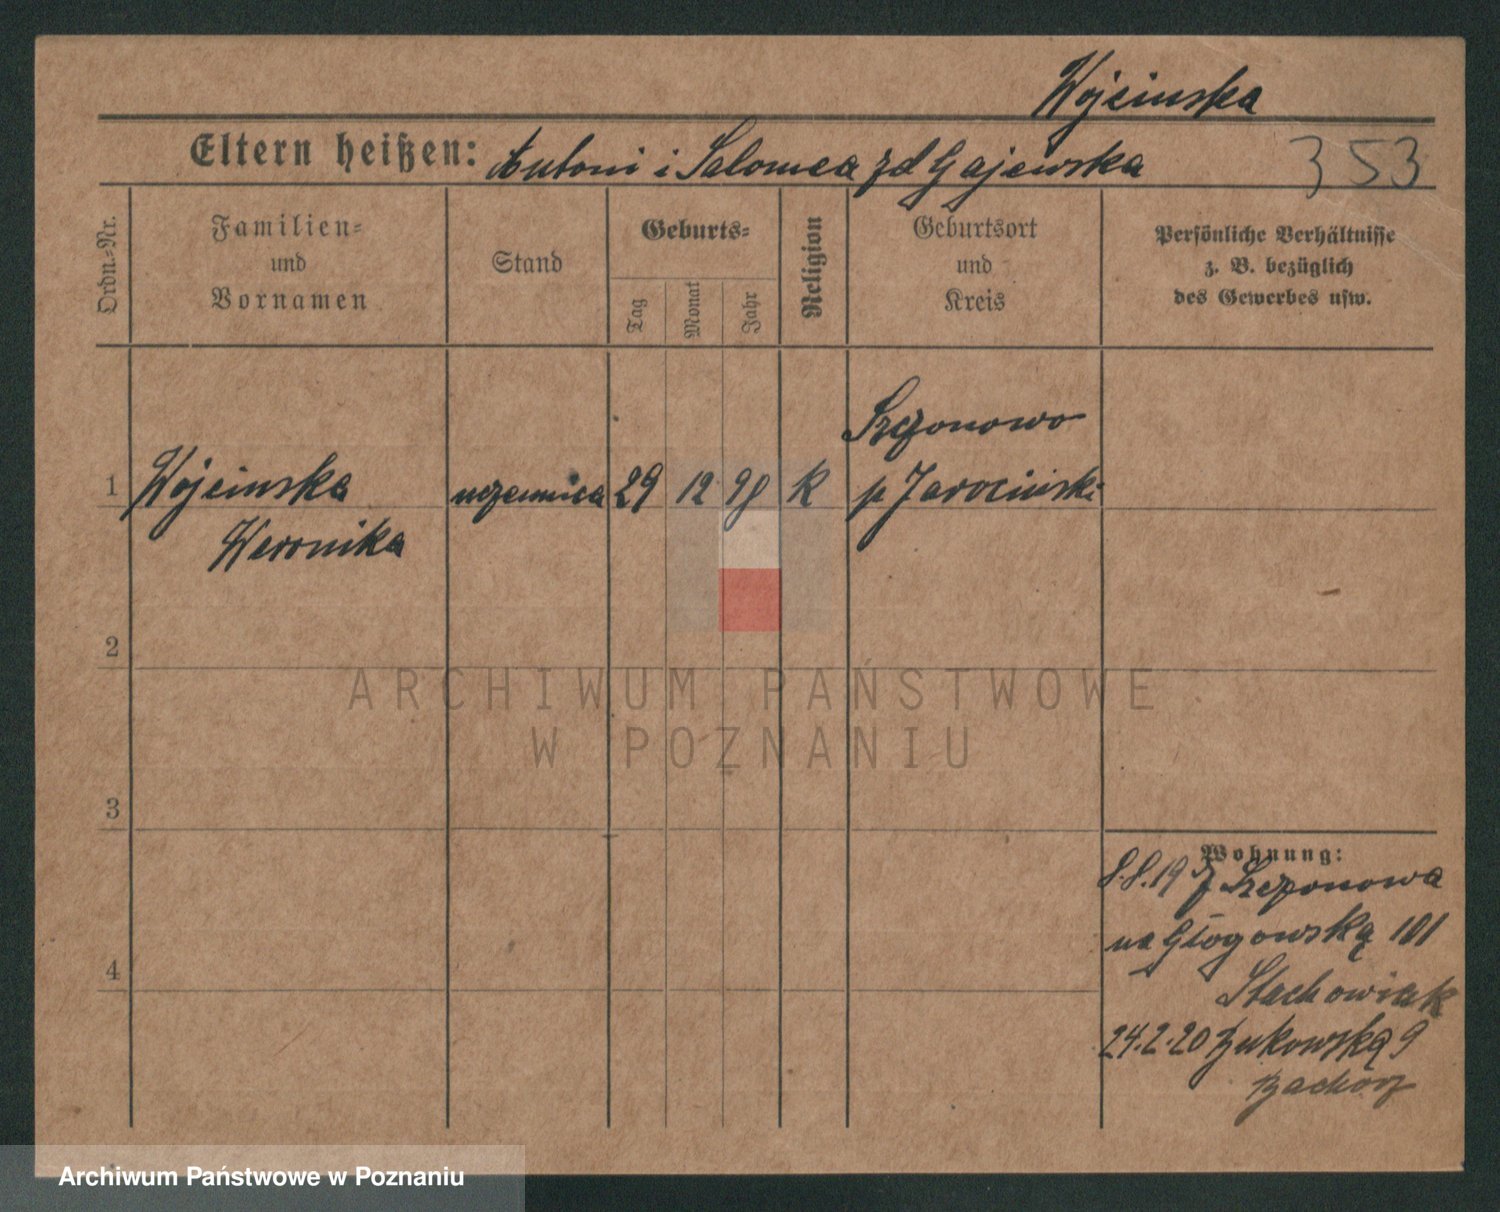 Wójcinska
Eltern heißen: Antoni i Salomea zd Gajewska 353
Ordn.-Nr.
Familien-
und
Vornamen
Stand
Geburts-
Tag
Monat
Jahr
Religion
Geburtsort
und
Kreis
Persönliche Verhältnisse
z. B. bezüglich
des Gewerbes usw.
Szczonowo
1 Wójcinska uczennica 29 12 98 k p Jarocinski
Weronika
2
3
4
ARCHIWUM PAŃSTWOWE
W POZNANIU
Wohnung:
8.8.19 z Szczonowa
na Głogowską 101
Stachowiak
24.2.20 Bukowską 9
Archiwum Państwowe w Poznaniu